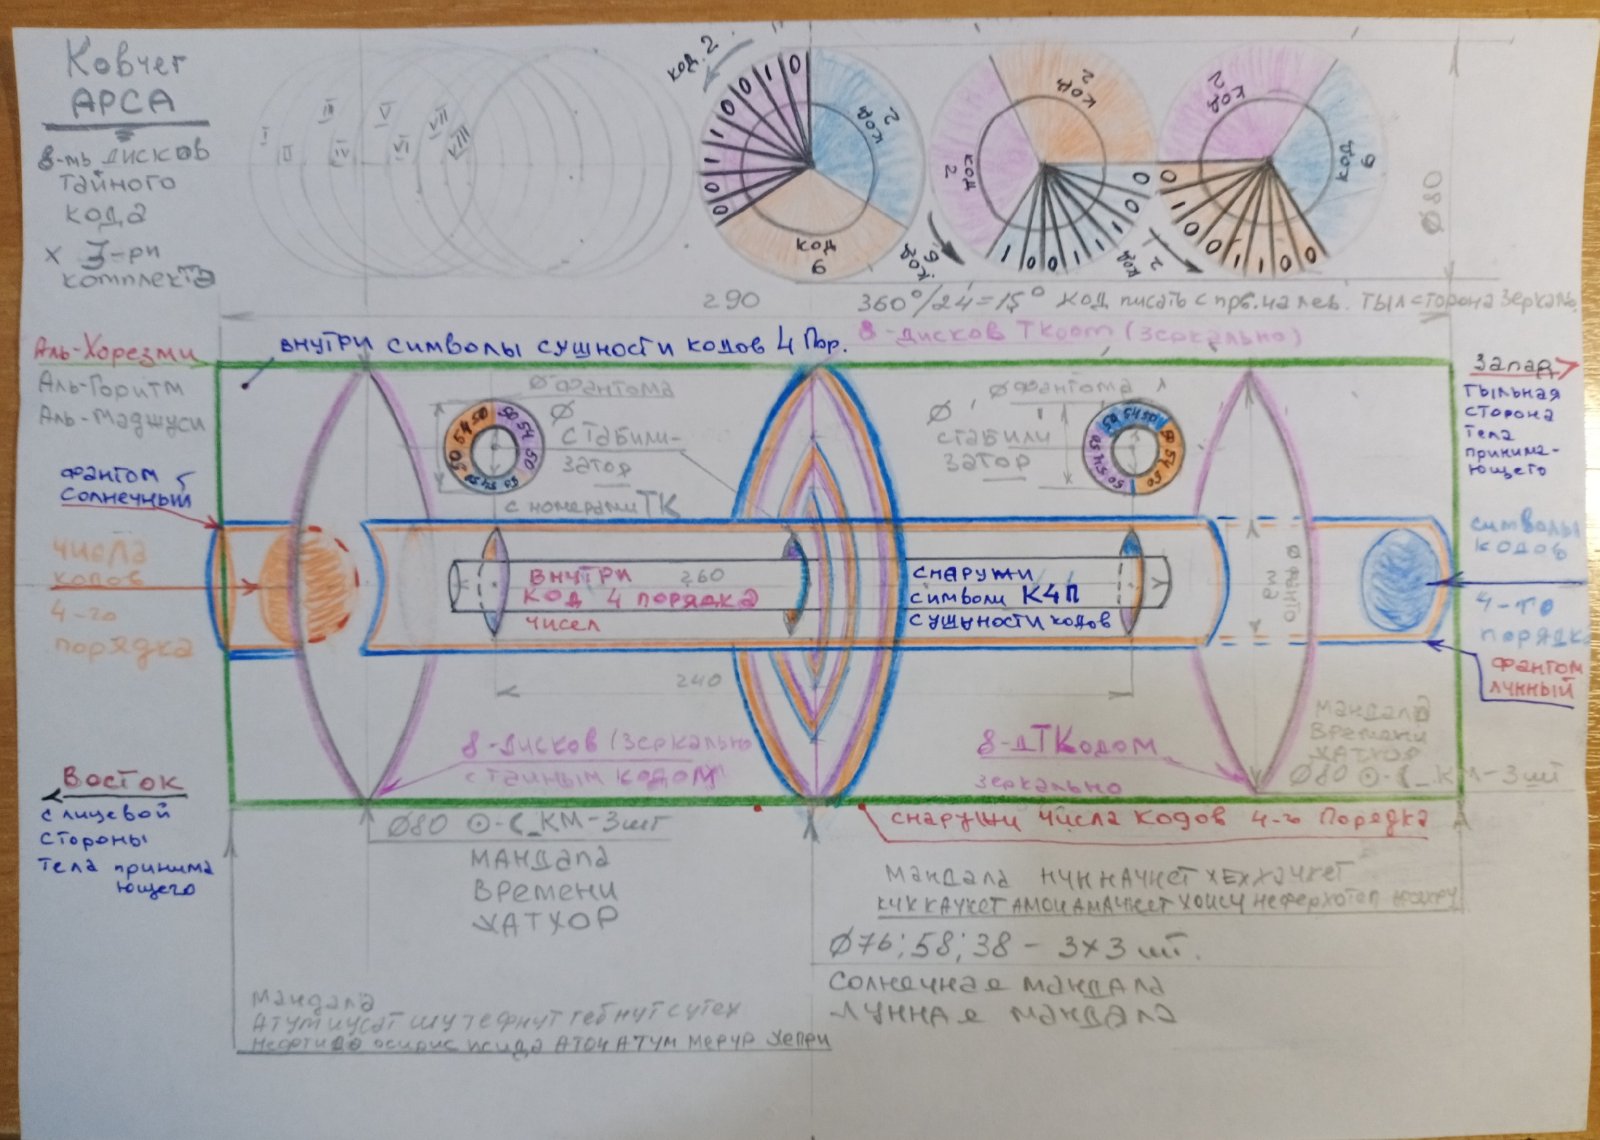 Ковчег
АРСА
8-мь дисков
тайного
кода
х 3-ри
комплекта
I
II
III
IV
V
VI
VII
VIII
код 2
0 0 1 1 0 0 1 0
код 2
код 6
код 6
код 2
код 2
1 0 0 1 1 1 0 0
код 2
код 6
0 1 0 0 1 1 0 0
Ø80
290
360°/24=15° код писать с прв. на лев. тыл сторона зеркаль
Аль-Хорезми
Аль-Горитм
Аль-Маджуси
внутри символы сущности кодов 4 Пор.
8-дисков ТКоот (зеркально)
Запад
тыльная
сторона
тела
принима-
ющего
Ø фантома
Ø
стабили-
затор
с номерами ТК
50 54 50 50 54 50 50 54 50
Ø фантома
Ø
стабили
затор
50 54 50 50 54 50 50 54 50
фантом
солнечный
числа
кодов
4-го
порядка
внутри 260
код 4 порядка
чисел
снаружи
символи К4П
сущности кодов
Ø фантома
символы
кодов
4-го
порядка
фантом
лунный
240
8-дисков (зеркально
с тайным кодом
8-дТКодом
зеркально
мандала
времени
ХАТХОР
Ø80 ⊙-☾_КМ-3шт
Восток
с лицевой
стороны
тела принима
ющего
Ø80 ⊙-☾_КМ-3шт
мандала
времени
ХАТХОР
снаружи числа кодов 4-го Порядка
мандала НУН НАУНЕТ ХЕХ ХАУХЕТ
КУК КАУКЕТ АМОН АМАУНЕТ ХОНСУ Неферхотеп
Ø76; 58; 38 - 3х3 шт.
солнечная мандала
лунная мандала
мандала
АТУМ ИУСАТ ШУ ТЕФНУТ ГЕБ НУТ СУТЕХ
осирис исида АТОН АТУМ мерур хепри